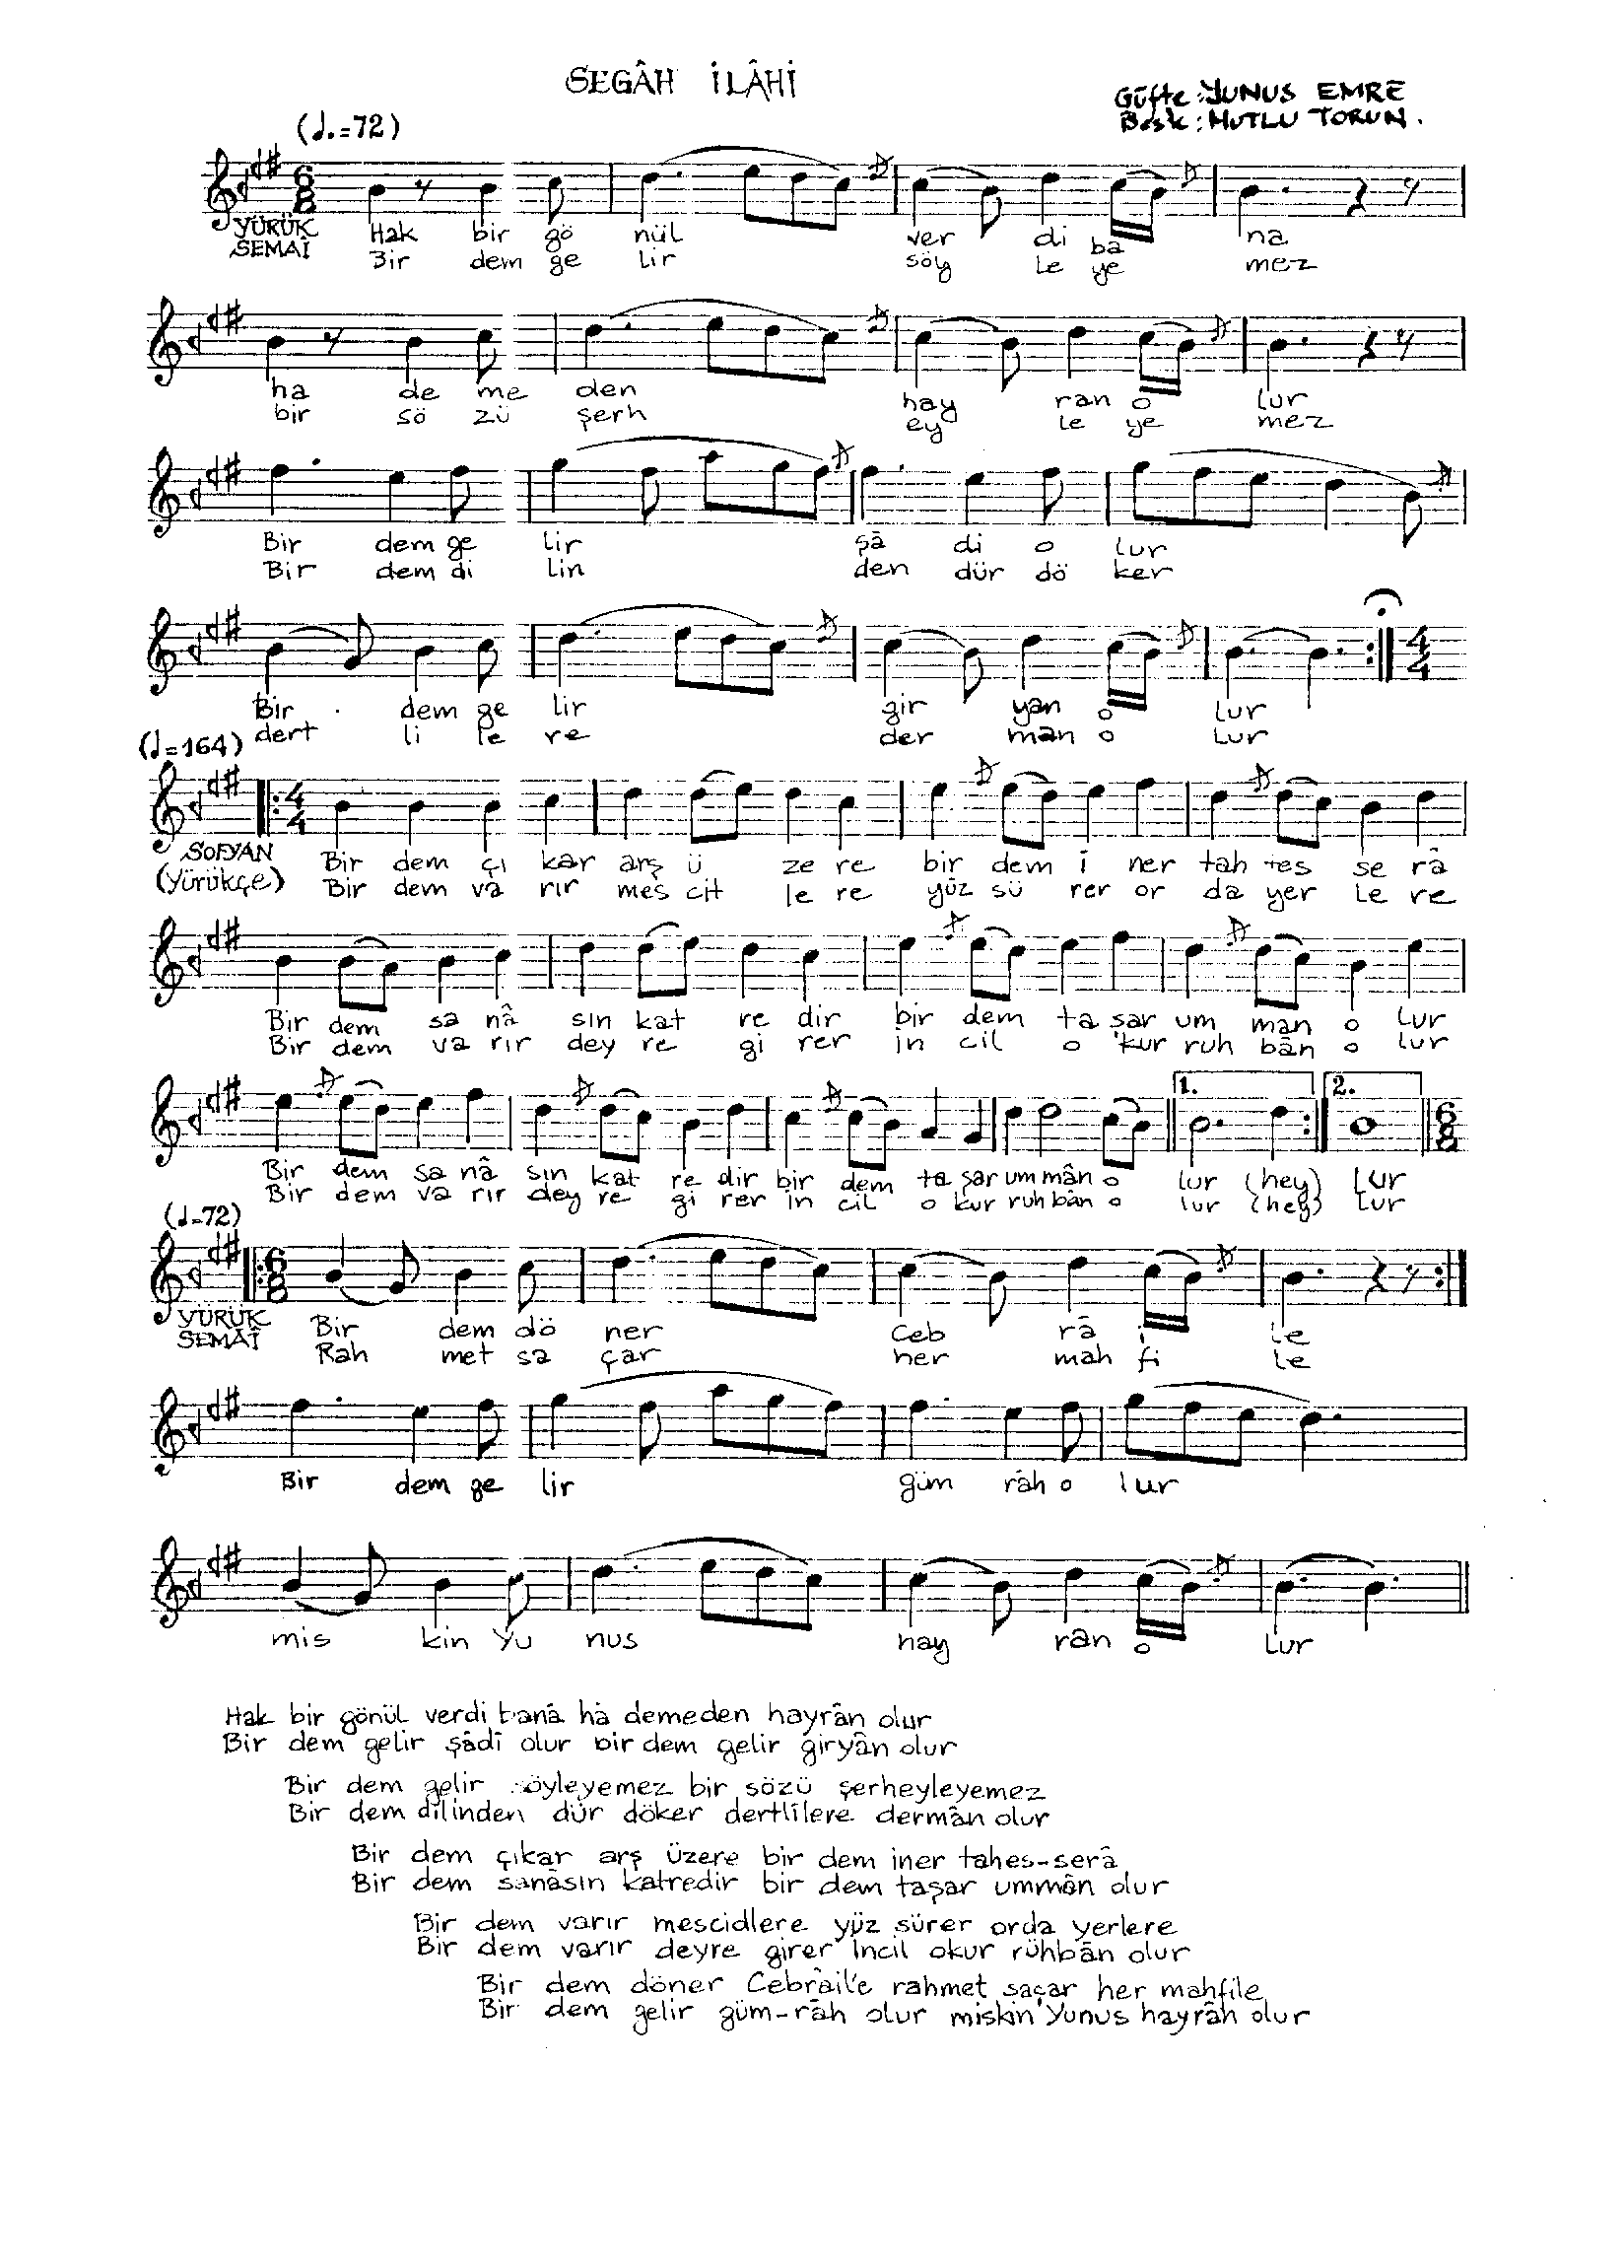 SEGÂH İLÂHİ
Güfte: YUNUS EMRE
Beste: MUTLU TORUN.
(♩.=72)
6/8
YÜRÜK SEMAÎ
Hak bir gö nül ver di ba na
Bir dem ge lir söy le ye mez
ha de me den hay ran o lur
bir sö zü şerh ey le ye mez
Bir dem ge lir şâ di o lur
Bir dem di lin den dür dö ker
Bir dem ge lir gir yan o lur
dert li le re der man o lur
4/4
(♩=164)
4/4
SOFYAN
(Yürükçe)
Bir dem çı kar arş ü ze re bir dem i ner tah tes se râ
Bir dem va rır mes cit le re yüz sü rer or da yer le re
Bir dem sa nâ sın kat re dir bir dem ta şar um man o lur
Bir dem va rır dey re gi rer in cil o kur ruh bân o lur
1. 2.
Bir dem sa nâ sın kat re dir bir dem ta şar um mân o lur (hey) lur
Bir dem va rır dey re gi rer in cil o kur ruh bân o lur (hey) lur
6/8
(♩=72)
6/8
YÜRÜK SEMAÎ
Bir dem dö ner Ceb râ i le
Rah met sa çar her mah fi le
Bir dem ge lir güm râh o lur
mis kin Yu nus hay ran o lur
Hak bir gönül verdi bana hâ demeden hayrân olur
Bir dem gelir şâdî olur bir dem gelir giryân olur
Bir dem gelir söyleyemez bir sözü şerheyleyemez
Bir dem dilinden dür döker dertlilere dermân olur
Bir dem çıkar arş üzere bir dem iner tahes-serâ
Bir dem sanâsın katredir bir dem taşar ummân olur
Bir dem varır mescidlere yüz sürer orda yerlere
Bir dem varır deyre girer İncil okur rühbân olur
Bir dem döner Cebrâil'e rahmet saçar her mahfile
Bir dem gelir güm-râh olur miskin Yunus hayrân olur